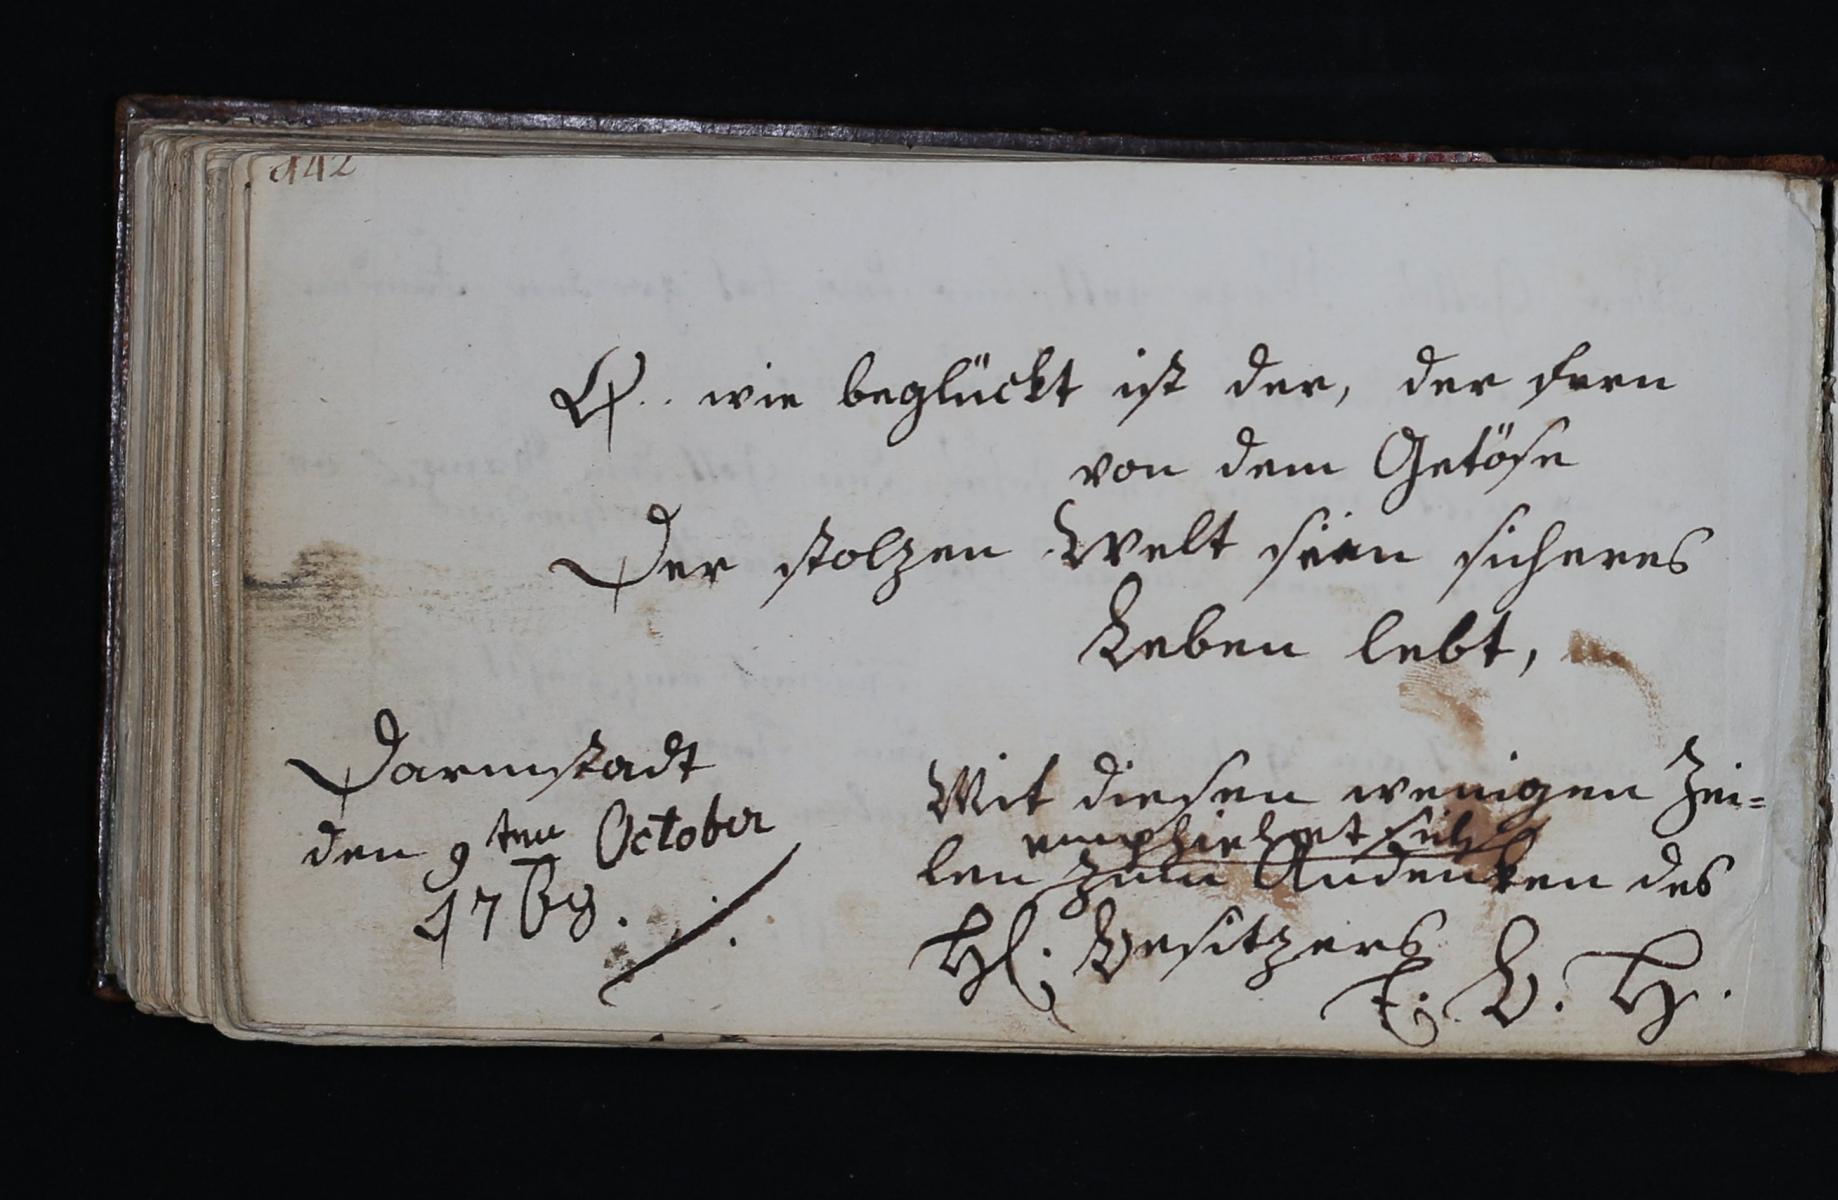 142
O.. wie beglückt ist der, der fern
von dem Getöse
Der stolzen Welt sein sicheres
Leben lebt,
Darmstadt
den 9ten October
1768.
Mit diesen wenigen Zei=
empfiehlet sich
len zum Andencken des
H. Besitzers
B. H.